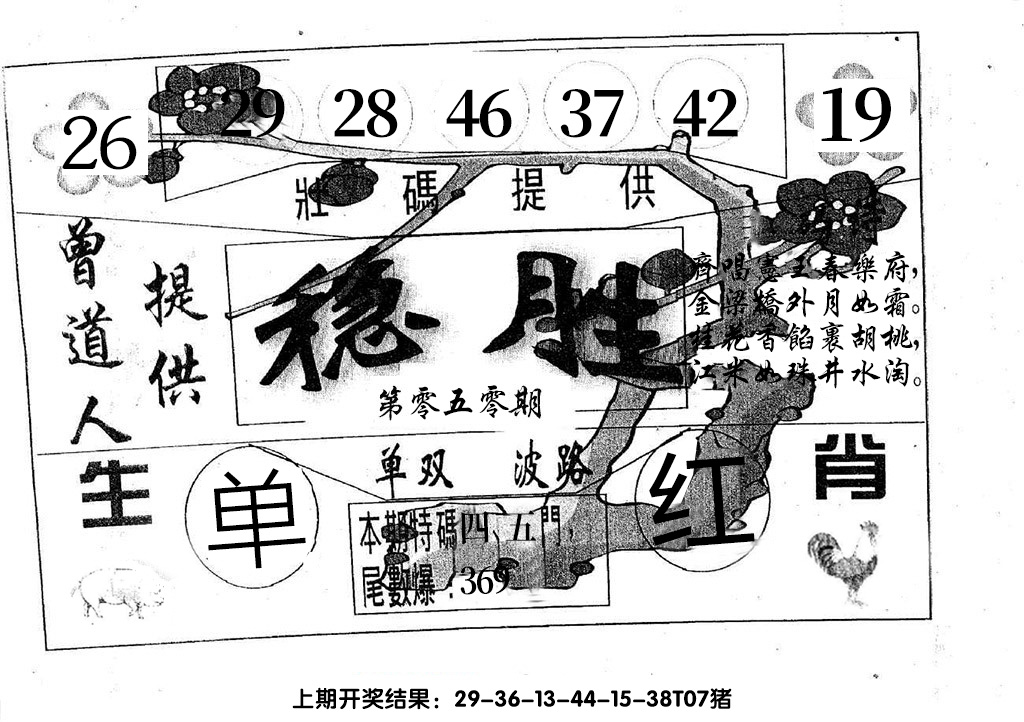 26 29 28 46 37 42 19
壯碼提供
曾道人
提供
稳胜
齊唱憲王春樂府，
金梁橋外月如霜。
桂花香餡裹胡桃，
江米如珠井水淘。
第零五零期
单双 波路
生 肖
单 红
本期特碼四、五門，
尾數爆：369
上期开奖结果：29-36-13-44-15-38T07猪